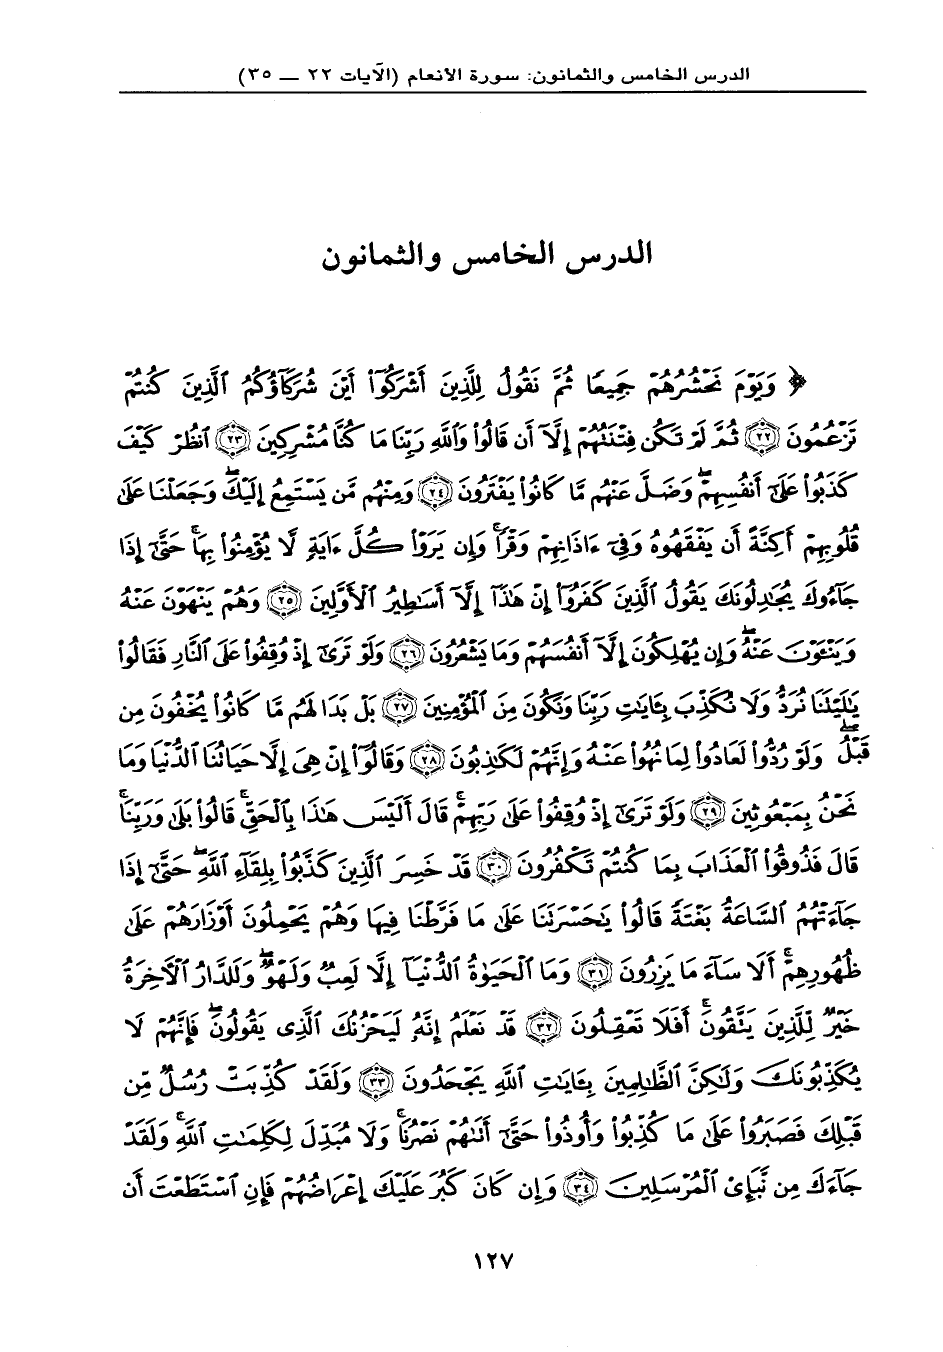 الدرس الخامس والثمانون: سورة الأنعام (الآيات ٢٢ ـــ ٣٥)
الدرس الخامس والثمانون
﴿ وَيَوْمَ نَحْشُرُهُمْ جَمِيعًا ثُمَّ نَقُولُ لِلَّذِينَ أَشْرَكُوٓا۟ أَيْنَ شُرَكَآؤُكُمُ ٱلَّذِينَ كُنتُمْ
تَزْعُمُونَ ﴿٢٢﴾ ثُمَّ لَمْ تَكُن فِتْنَتُهُمْ إِلَّآ أَن قَالُوا۟ وَٱللَّهِ رَبِّنَا مَا كُنَّا مُشْرِكِينَ ﴿٢٣﴾ ٱنظُرْ كَيْفَ
كَذَبُوا۟ عَلَىٰٓ أَنفُسِهِمْ ۖ وَضَلَّ عَنْهُم مَّا كَانُوا۟ يَفْتَرُونَ ﴿٢٤﴾ وَمِنْهُم مَّن يَسْتَمِعُ إِلَيْكَ ۖ وَجَعَلْنَا عَلَىٰ
قُلُوبِهِمْ أَكِنَّةً أَن يَفْقَهُوهُ وَفِىٓ ءَاذَانِهِمْ وَقْرًا ۚ وَإِن يَرَوْا۟ كُلَّ ءَايَةٍ لَّا يُؤْمِنُوا۟ بِهَا ۚ حَتَّىٰٓ إِذَا
جَآءُوكَ يُجَٰدِلُونَكَ يَقُولُ ٱلَّذِينَ كَفَرُوٓا۟ إِنْ هَٰذَآ إِلَّآ أَسَٰطِيرُ ٱلْأَوَّلِينَ ﴿٢٥﴾ وَهُمْ يَنْهَوْنَ عَنْهُ
وَيَنْـَٔوْنَ عَنْهُ ۖ وَإِن يُهْلِكُونَ إِلَّآ أَنفُسَهُمْ وَمَا يَشْعُرُونَ ﴿٢٦﴾ وَلَوْ تَرَىٰٓ إِذْ وُقِفُوا۟ عَلَى ٱلنَّارِ فَقَالُوا۟
يَٰلَيْتَنَا نُرَدُّ وَلَا نُكَذِّبَ بِـَٔايَٰتِ رَبِّنَا وَنَكُونَ مِنَ ٱلْمُؤْمِنِينَ ﴿٢٧﴾ بَلْ بَدَا لَهُم مَّا كَانُوا۟ يُخْفُونَ مِن
قَبْلُ ۖ وَلَوْ رُدُّوا۟ لَعَادُوا۟ لِمَا نُهُوا۟ عَنْهُ وَإِنَّهُمْ لَكَٰذِبُونَ ﴿٢٨﴾ وَقَالُوٓا۟ إِنْ هِىَ إِلَّا حَيَاتُنَا ٱلدُّنْيَا وَمَا
نَحْنُ بِمَبْعُوثِينَ ﴿٢٩﴾ وَلَوْ تَرَىٰٓ إِذْ وُقِفُوا۟ عَلَىٰ رَبِّهِمْ ۚ قَالَ أَلَيْسَ هَٰذَا بِٱلْحَقِّ ۚ قَالُوا۟ بَلَىٰ وَرَبِّنَا ۚ
قَالَ فَذُوقُوا۟ ٱلْعَذَابَ بِمَا كُنتُمْ تَكْفُرُونَ ﴿٣٠﴾ قَدْ خَسِرَ ٱلَّذِينَ كَذَّبُوا۟ بِلِقَآءِ ٱللَّهِ ۖ حَتَّىٰٓ إِذَا
جَآءَتْهُمُ ٱلسَّاعَةُ بَغْتَةً قَالُوا۟ يَٰحَسْرَتَنَا عَلَىٰ مَا فَرَّطْنَا فِيهَا وَهُمْ يَحْمِلُونَ أَوْزَارَهُمْ عَلَىٰ
ظُهُورِهِمْ ۚ أَلَا سَآءَ مَا يَزِرُونَ ﴿٣١﴾ وَمَا ٱلْحَيَوٰةُ ٱلدُّنْيَآ إِلَّا لَعِبٌ وَلَهْوٌ ۖ وَلَلدَّارُ ٱلْءَاخِرَةُ
خَيْرٌ لِّلَّذِينَ يَتَّقُونَ ۗ أَفَلَا تَعْقِلُونَ ﴿٣٢﴾ قَدْ نَعْلَمُ إِنَّهُۥ لَيَحْزُنُكَ ٱلَّذِى يَقُولُونَ ۖ فَإِنَّهُمْ لَا
يُكَذِّبُونَكَ وَلَٰكِنَّ ٱلظَّٰلِمِينَ بِـَٔايَٰتِ ٱللَّهِ يَجْحَدُونَ ﴿٣٣﴾ وَلَقَدْ كُذِّبَتْ رُسُلٌ مِّن
قَبْلِكَ فَصَبَرُوا۟ عَلَىٰ مَا كُذِّبُوا۟ وَأُوذُوا۟ حَتَّىٰٓ أَتَىٰهُمْ نَصْرُنَا ۚ وَلَا مُبَدِّلَ لِكَلِمَٰتِ ٱللَّهِ ۚ وَلَقَدْ
جَآءَكَ مِن نَّبَإِى۟ ٱلْمُرْسَلِينَ ﴿٣٤﴾ وَإِن كَانَ كَبُرَ عَلَيْكَ إِعْرَاضُهُمْ فَإِنِ ٱسْتَطَعْتَ أَن
١٢٧